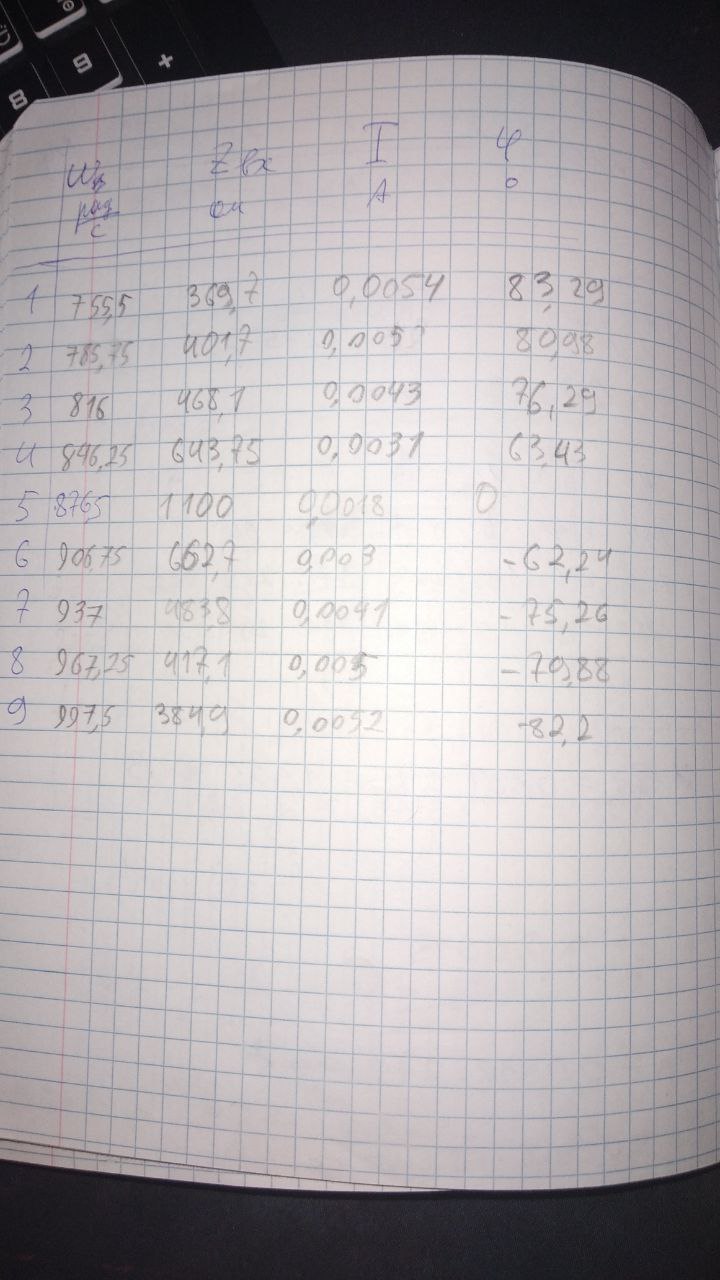 Zвх I φ
рад/с ом А °
1 755,5 369,7 0,0054 83,29
2 785,75 401,7 0,005 80,98
3 816 468,1 0,0043 76,29
4 846,25 643,75 0,0031 63,43
5 876,5 1100 0,0018 0
6 906,75 662,7 0,003 -62,24
7 937 483,8 0,0041 -75,26
8 967,25 417,1 0,005 -79,88
9 997,5 384,9 0,0052 -82,2
8 9 +